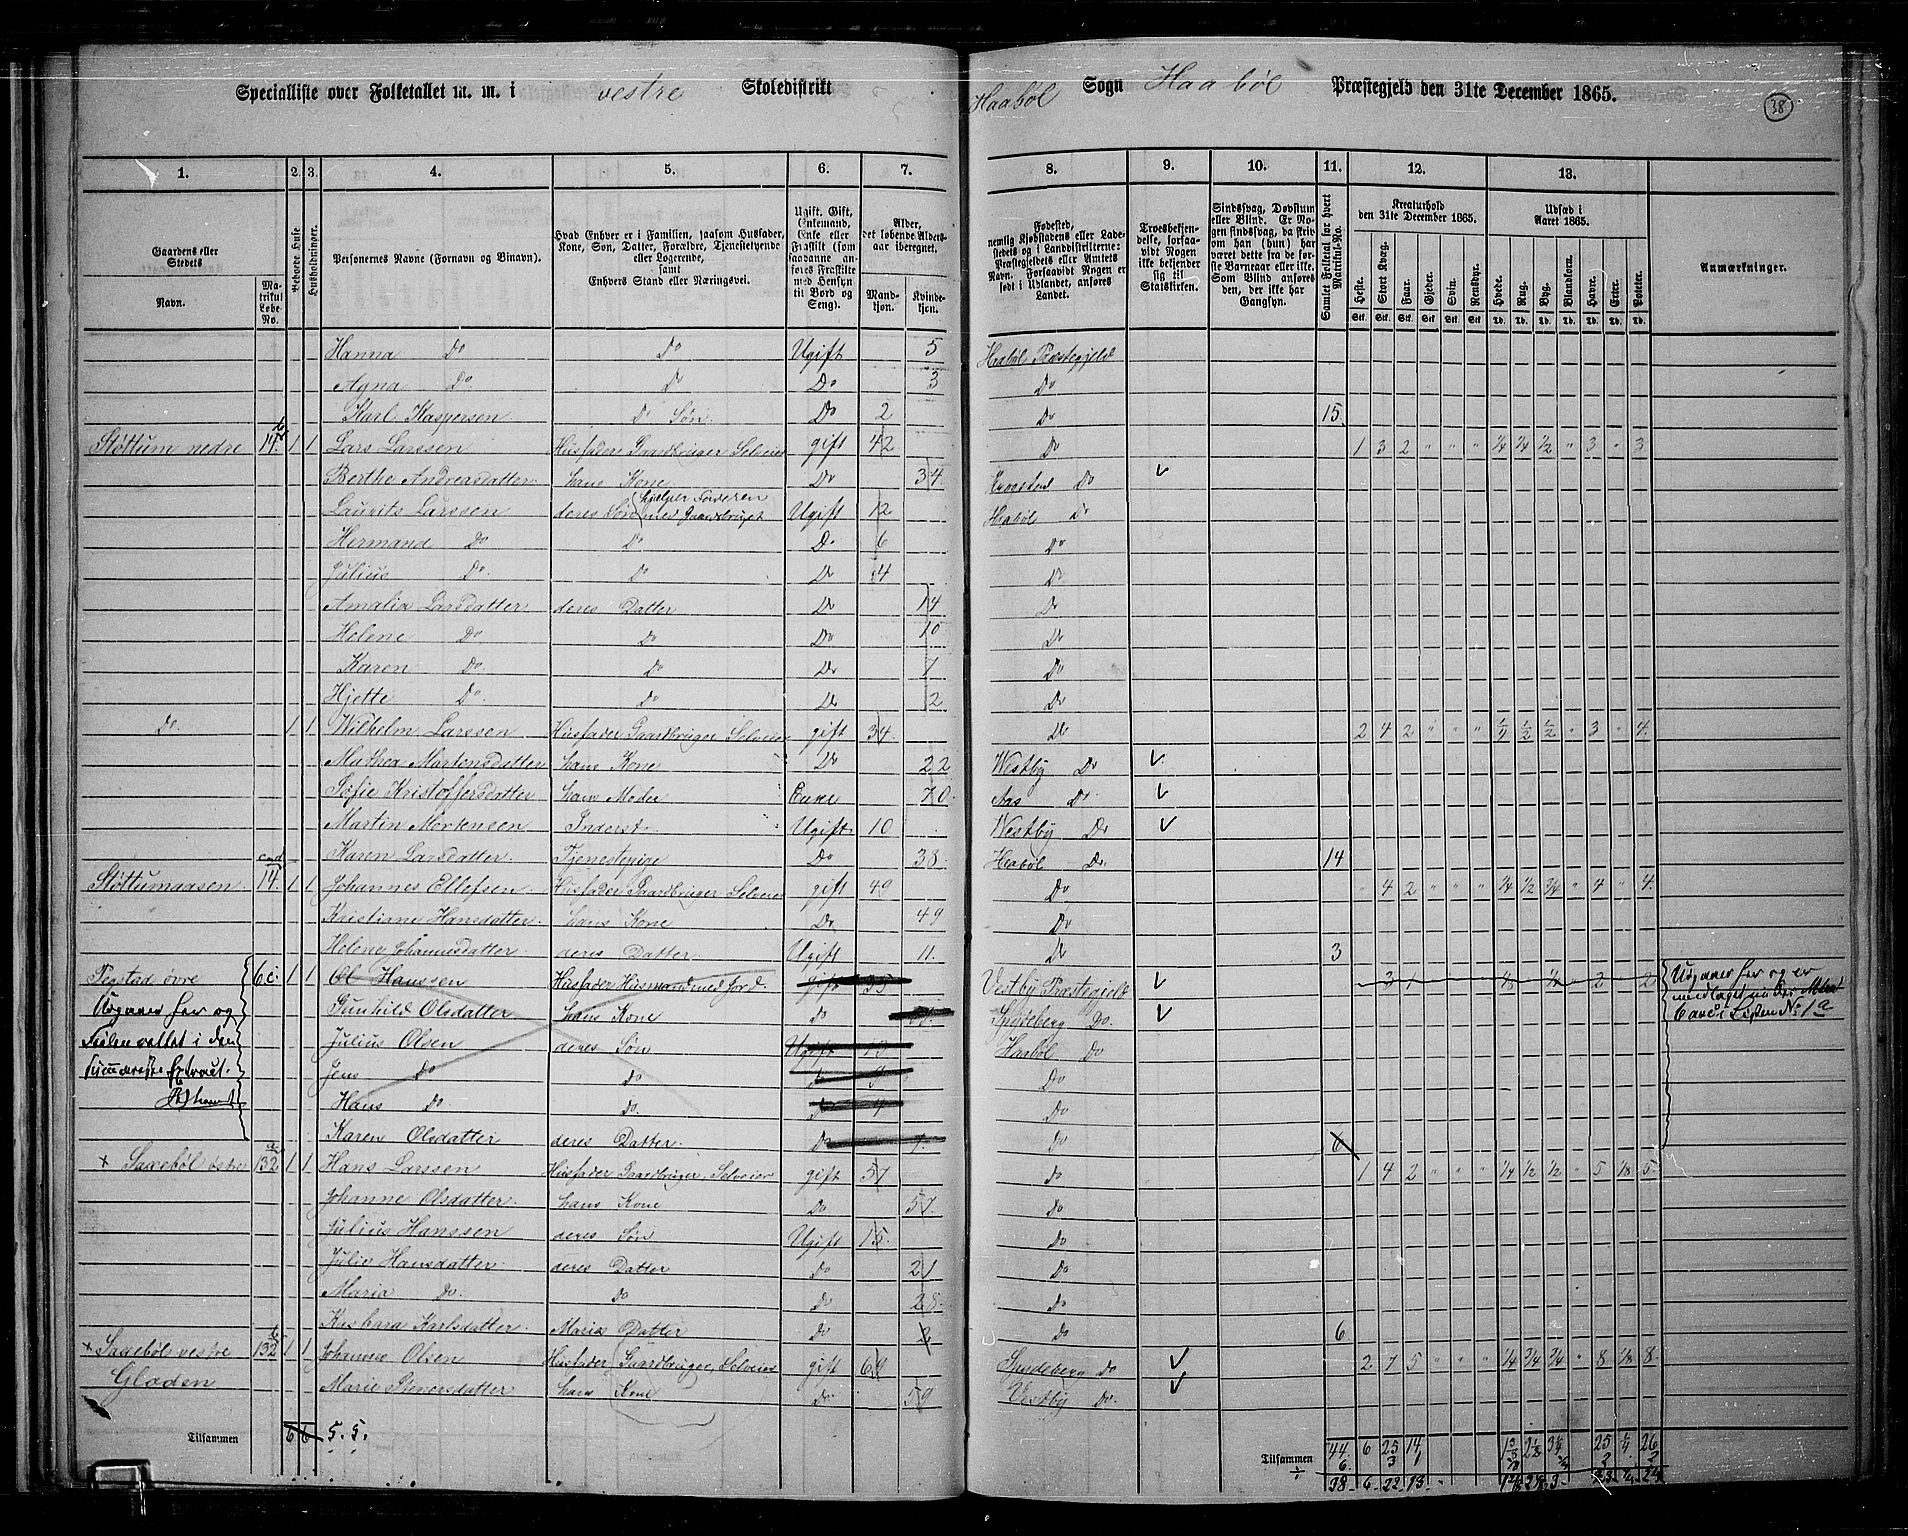 Specialliste over Folketallet m. m. i vestre Skoledistrikt Haabøl Sogn Haabøl Præstegjeld den 31te December 1865.
38
1. 2. 3. 4. 5. 6. 7. 8. 9. 10. 11. 12. 13.
Gaardens eller Stedets Navn. Matrikul Løbe-No.
Beboede Huse
Husholdninger.
Personernes Navne (Fornavn og Binavn).
Hvad Enhver er i Familien, saasom Husfader, Kone, Søn, Datter, Forældre, Tjenestetyende eller Logerende, samt Enhvers Stand eller Næringsvei.
Ugift, Gift, Enkemand, Enke eller Fraskilt (som saadanne anføres Fraskilte med Hensyn til Bord og Seng).
Alder, det løbende Alders-aar iberegnet. Mandkjøn. Kvindekjøn.
Fødested, nemlig Kjøbstadens eller Ladestedets og i Landdistrikterne: Præstegjeldets eller Amtets Navn. Forsaavidt Nogen er født i Udlandet, anføres Landet.
Troesbekjendelse, forsaavidt Nogen ikke bekjender sig til Statskirken.
Sindssvag, Døvstum eller Blind. Er Nogen sindssvag, da skrives om han (hun) har været dette fra de første Barneaar eller ikke. Som Blind anføres den, der ikke har Gangsyn.
Samlet Folketal for hvert Matrikul-No.
Kreaturhold den 31te December 1865.
Heste. Stort Kvæg. Faar. Gjeder. Svin. Rensdyr.
Udsæd i Aaret 1865.
Hvede. Rug. Byg. Blandkorn. Havre. Erter. Poteter.
Anmærkninger.
Hanna Do Do Ugift 5 Haabøl Præstegjeld
Agna Do Do Do 3 Do
Karl Kaspersen Do Søn Do 2 Do 15
Støttum nedre 14 b 1 1 Lars Larssen Husfader Gaardbruger Selveier gift 42 Do 1 3 2 " " " 1/4 1/4 1/2 " 3 " 3
Berthe Andreasdatter hans Kone Do 34 Krogstad Do
Laurits Larssen deres Søn hjelper Faderen med Gaardsbruget Ugift 12 Haabøl Do
Hermand Do Do Do 6 Do
Julius Do Do Do 4 Do
Amalia Larsdatter deres Datter Do 14 Do
Helene Do Do Do 10 Do
Karen Do Do Do 7 Do
Hjette Do Do Do 2 Do
Do 1 1 Wilhelm Larssen Husfader Gaardbruger Selveier gift 34 Do 2 4 2 " " " 1/2 1/2 1/2 " 3 " 4
Mathea Martensdatter hans Kone Do 22 Westby Do
Sofie Kristoffersdatter hans Moder Enke 70 Aas Do
Martin Mortensen Inderst Ugift 10 Westby Do
Karen Larsdatter Tjenestepige Do 38 Haabøl Do 14
Støttumaasen 14 1 1 Johannes Ellefsen Husfader Gaardbruger Selveier gift 49 Do " 4 2 " " " 1/4 1/2 3/4 " 4 " 4
Kristiane Hansdatter hans Kone Do 49 Do
Helene Johannesdatter deres Datter Ugift 11 Do 3
Tegstad øvre 6 c 1 1 Ol Hanssen Husfader Husmand med Jord gift 35 Vestby Præstegjeld 3 1 2 2
Udgaaer her og
Gunhild Olsdatter hans Kone do Spydeberg Do
Julius Olsen deres Søn Ugift 13 Haabøl Do
Jens Do Do do 9 Do
Hans Do Do Do 4 Do
Karen Olsdatter deres Datter Do 7 Do 6
Udgaaer her og er
Saxebøl østre 132 a 1 1 Hans Larssen Husfader Gaardbruger, Selveier gift 57 Do 1 4 2 " " " 1/4 1/2 1/2 " 5 1/8 5
Johanne Olsdatter hans Kone Do 57 Do
Julius Hanssen deres Søn Ugift 15 Do
Julie Hansdatter deres Datter Do 21 Do
Maria Do Do Do 28 Do
Karlsdatter Marias Datter Do 2 Do 6
Saxebøl vestre 132 b 1 1 Johannes Olsen Husfader Gaardbruger, Selveier gift 69 Spydeberg Do 2 7 5 " " " 1/4 3/4 3/4 " 8 1/8 8
Gladen Marie Siversdatter hans Kone Do 59 Vestby Do
Tilsammen 6 6 5. 5. Tilsammen 44 6 25 14 25 1/4 26
6 3 1 2 2
38 6 22 13 23 1/4 24